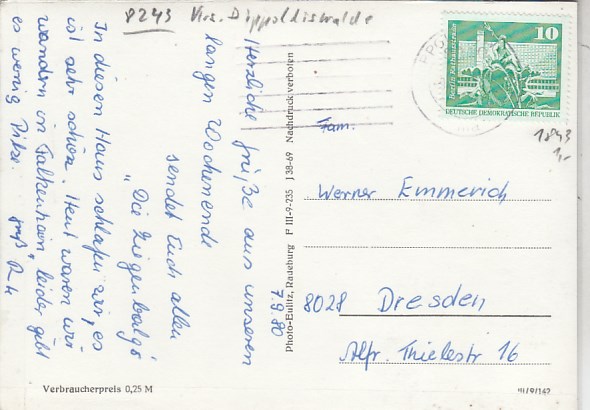 8243 Krs. Dippoldiswalde
Herzliche Grüße aus unseren
langen Wochenende
sendet Euch allen
"Die Ziegenbalgs"
7.9.80
In diesen Haus schlafen wir, es
ist sehr schön. Heut waren wir
wandern in Falkenhain, leider gibt
es wenig Pilze.
Verbraucherpreis 0,25 M
Photo-Eulitz, Radeburg P III-9-235 J 38-69 Nachdruck verboten
10
Berlin, Rathausstraße
DEUTSCHE DEMOKRATISCHE REPUBLIK
1843
1,-
Fam.
Werner Emmerich
8028 Dresden
Alfr. Thielestr 16
III/9/142